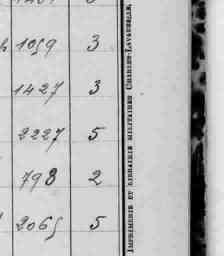 1059 3
1427 3
2227 5
798 2
2065 5
IMPRIMERIE ET LIBRAIRIE MILITAIRES CHARLES-LAVAUZELLE.